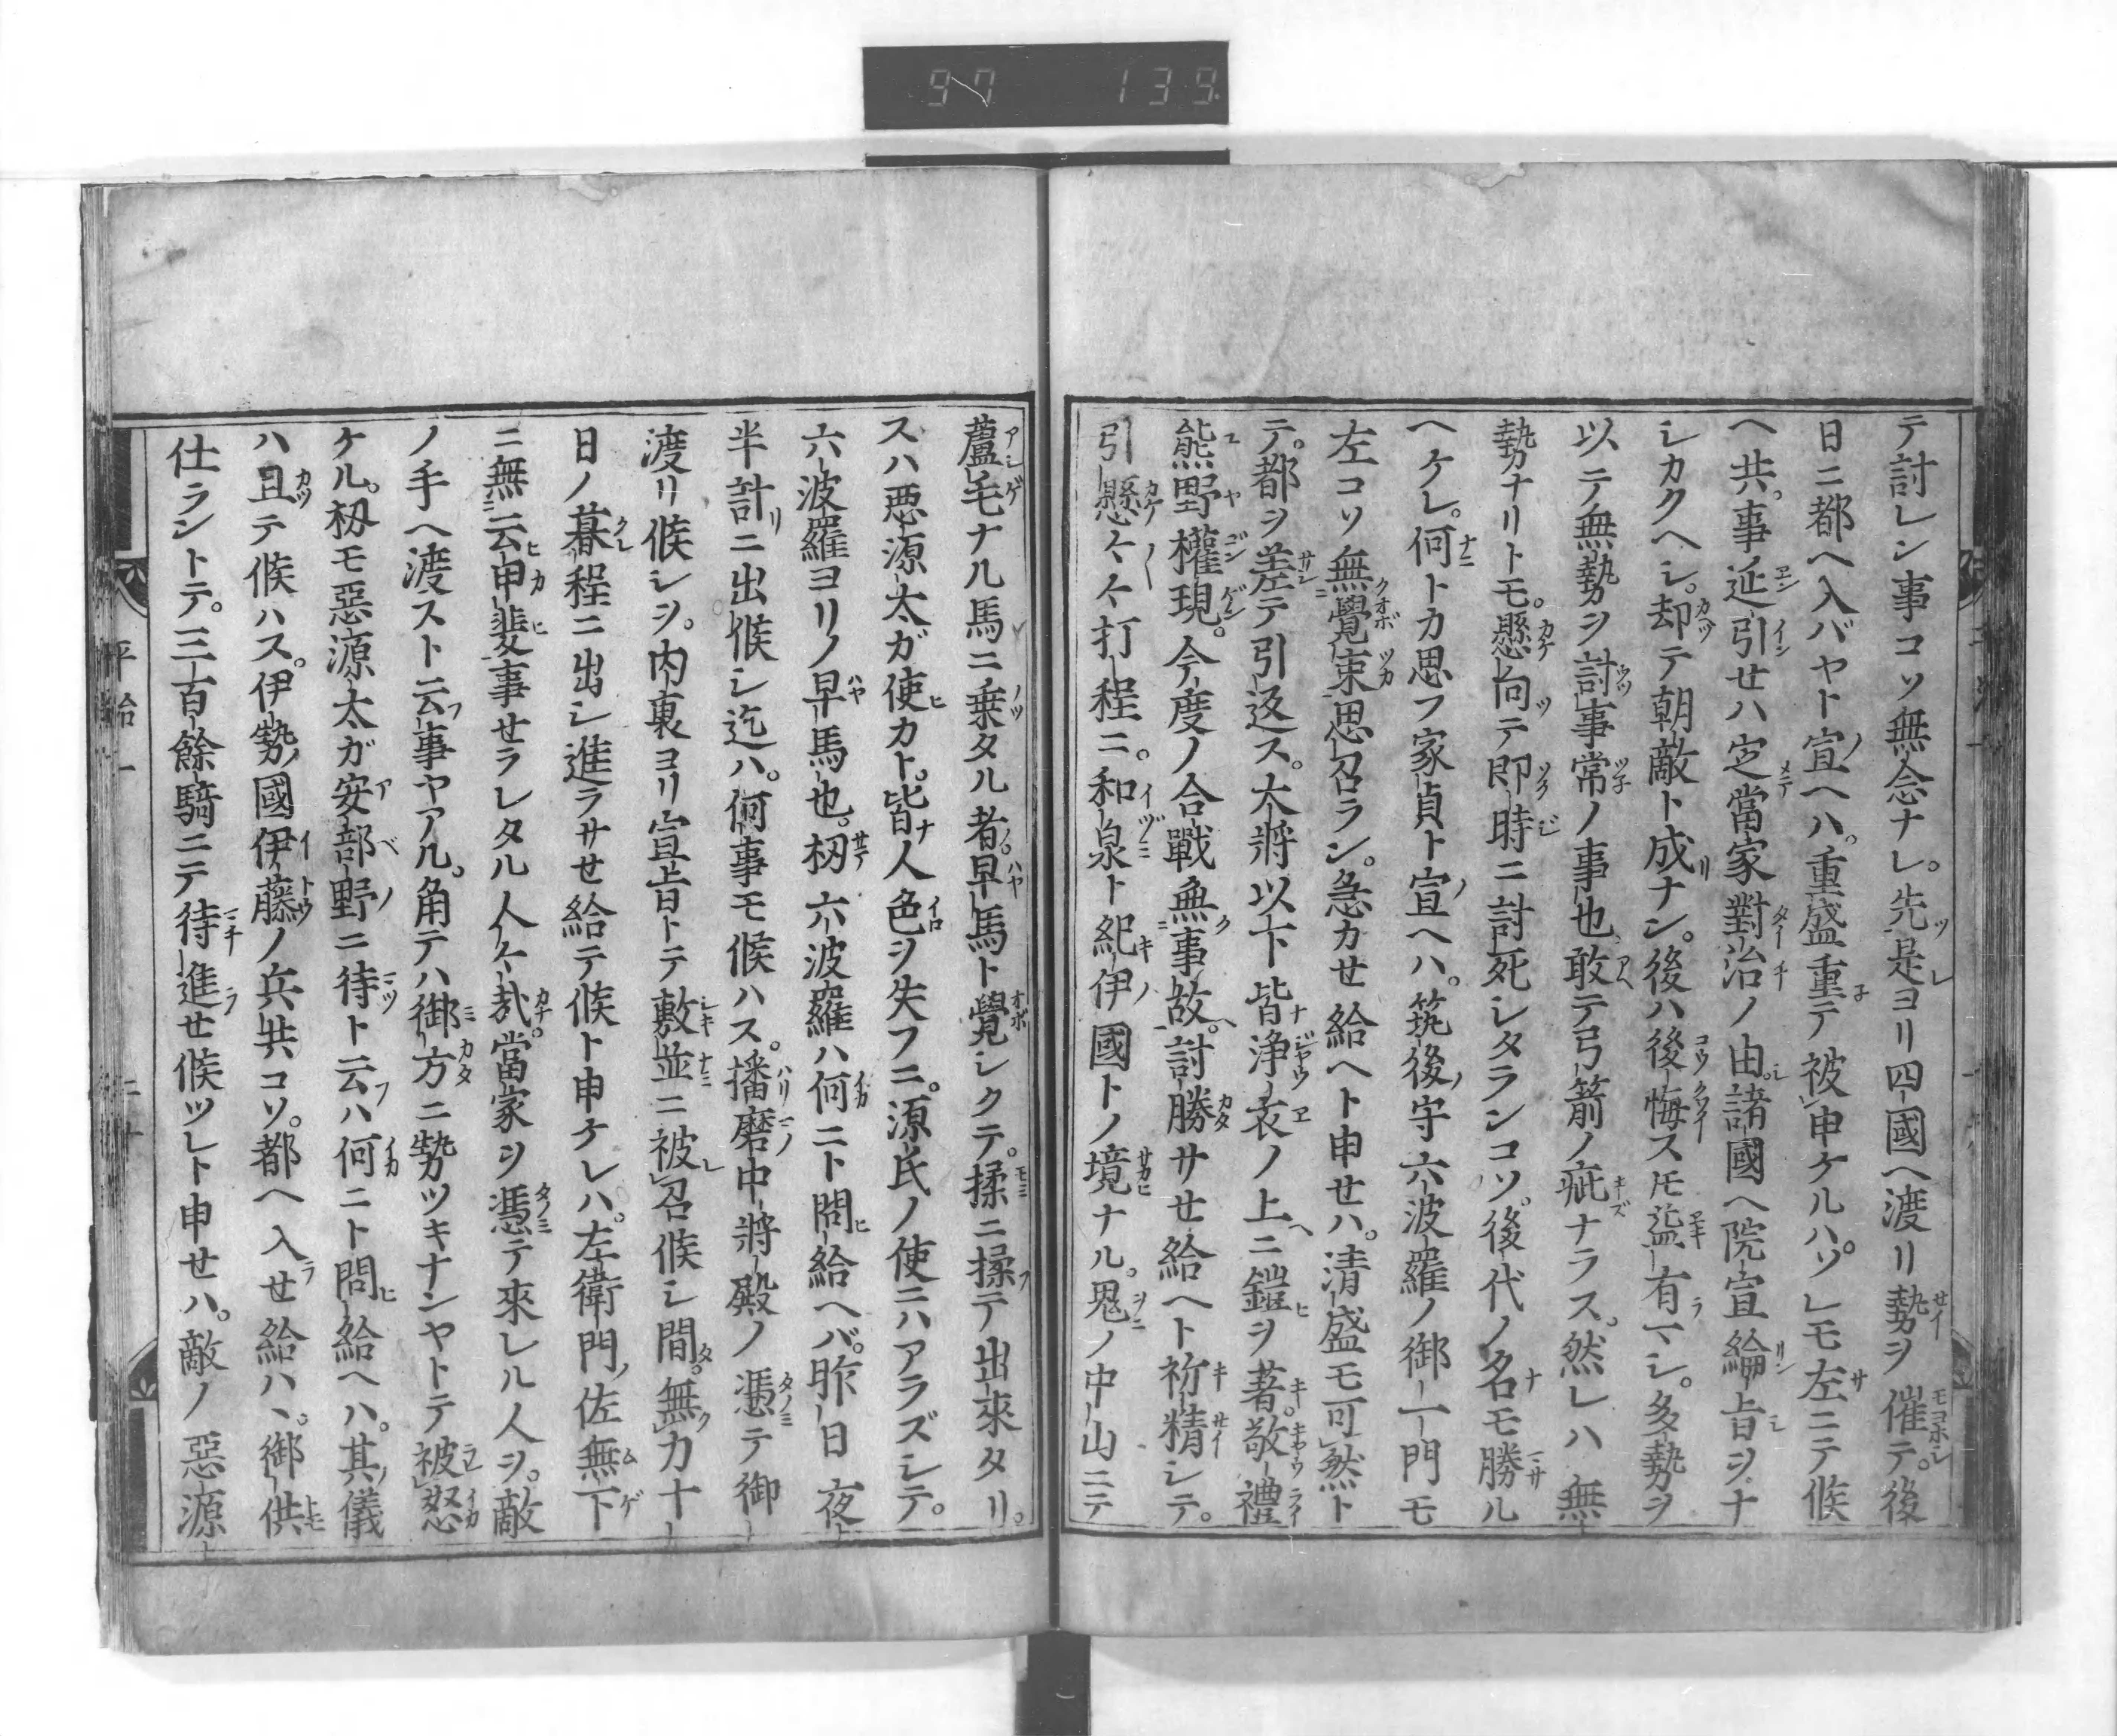 97 139
テ討レン事コソ無念ナレ。先是ヨリ四國ヘ渡リ勢ヲ催テ。後
日ニ都ヘ入バヤト宣ヘハ。重盛重テ被申ケルハソレモ左ニテ候
ヘ共。事延引せハ定當家對治ノ由諸國ヘ院宣綸旨ヲナ
シカクヘシ。却テ朝敵ト成ナン。後ハ後悔スモ益有マシ。多勢ヲ
以テ無勢ヲ討事常ノ事也敢テ弓箭ノ疵ナラス。然レハ無
勢ナリトモ。懸向テ即時ニ討死シタランコソ。後代ノ名モ勝ル
ヘケレ。何トカ思フ家貞ト宣ヘハ。筑後守六波羅ノ御一門モ
左コソ無覺束思召ラン。急カせ給ヘト申せハ。清盛モ可然ト
テ。都ヲ差テ引返ス。大將以下皆浄衣ノ上ニ鎧ヲ著。敬禮
熊野權現。今度ノ合戰無事故。討勝サせ給ヘト祈精シテ。
引懸々々打程ニ。和泉ト紀伊國トノ境ナル。鬼ノ中山ニテ
蘆毛ナル馬ニ乗タル者。早馬ト覺シクテ。揉ニ揉テ出來タリ。
スハ悪源太ガ使カト。皆人色ヲ失フニ。源氏ノ使ニハアラズシテ。
六波羅ヨリノ早馬也。扨六波羅ハ何ニト問給ヘバ。昨日夜
半計ニ出候シ迄ハ。何事モ候ハス。播磨中將殿ノ憑テ御
渡リ候シヲ。内裏ヨリ宣旨トテ敷並ニ被召候シ間。無力十
日ノ暮程ニ出シ進ラサせ給テ候ト申ケレハ。左衛門佐無下
ニ無云甲斐事せラレタル人々哉。當家ヲ憑テ來レル人ヲ。敵
ノ手ヘ渡スト云事ヤアル。角テハ御方ニ勢ツキナンヤトテ被怒
ケル。扨モ惡源太ガ安部野ニ待ト云ハ何ニト問給ヘハ。其儀
ハ且テ候ハス。伊勢國伊藤ノ兵共コソ。都ヘ入せ給ハヽ。御供
仕ラントテ。三百餘騎ニテ待進せ候ツレト申せハ。敵ノ惡源
平治一